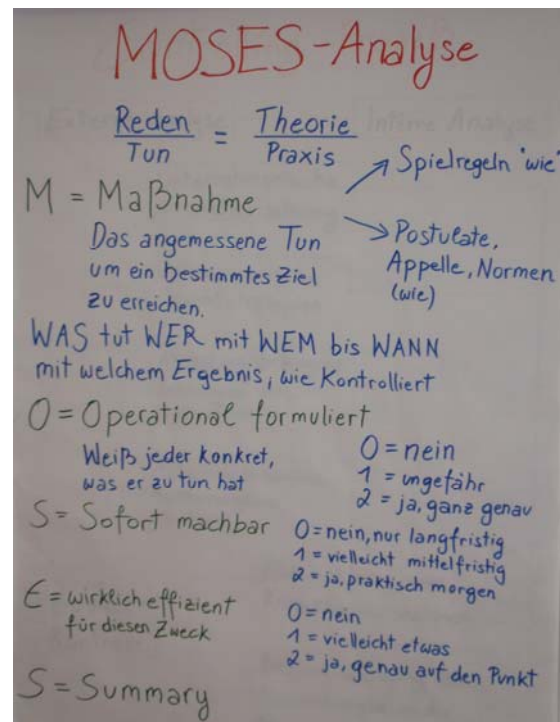 MOSES-Analyse
Reden = Theorie
Tun Praxis
→ Spielregeln "wie"
M = Maßnahme
→ Postulate,
Appelle, Normen
(wie)
Das angemessene Tun
um ein bestimmtes Ziel
zu erreichen.
WAS tut WER mit WEM bis WANN
mit welchem Ergebnis, wie Kontrolliert
O = Operational formuliert
Weiß jeder konkret,
was er zu tun hat
0 = nein
1 = ungefähr
2 = ja, ganz genau
S = Sofort machbar
0 = nein, nur langfristig
1 = vielleicht mittelfristig
2 = ja, praktisch morgen
E = wirklich effizient
für diesen Zweck
0 = nein
1 = vielleicht etwas
2 = ja, genau auf den Punkt
S = Summary